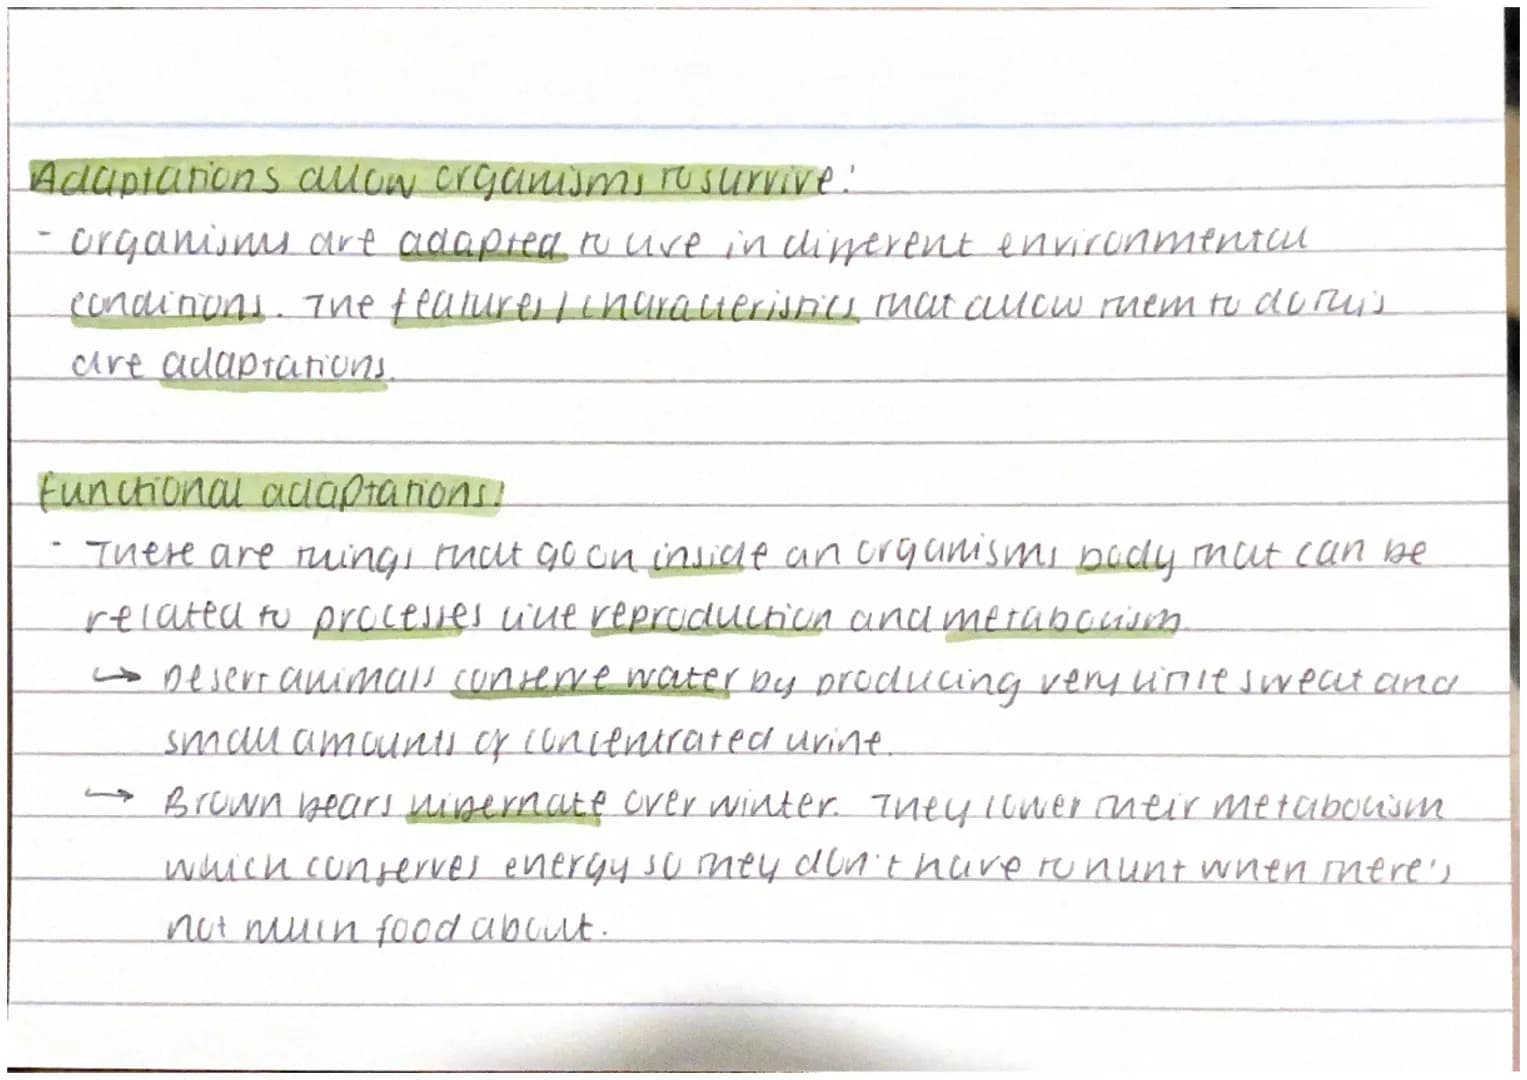 Adaptations allow organisms to survive:
- organisms are adapted to live in different environmental
conditions. The features/characteristics that allow them to do this
are adaptations.
Functional adaptations:
- There are things that go on inside an organisms body that can be
related to processes like reproduction and metabolism
→ Desert animals conserve water by producing very little sweat and
small amounts of concentrated urine.
→ Brown bears hibernate over winter. They lower their metabolism
which conserves energy so they don't have to hunt when there's
not much food about.